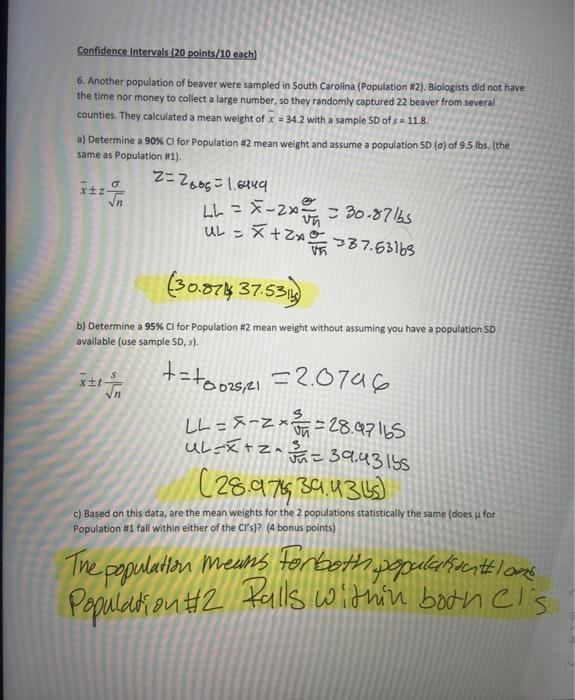 Confidence Intervals (20 points/10 each)
6. Another population of beaver were sampled in South Carolina (Population #2). Biologists did not have
the time nor money to collect a large number, so they randomly captured 22 beaver from several
counties. They calculated a mean weight of x̄ = 34.2 with a sample SD of s = 11.8.
a) Determine a 90% CI for Population #2 mean weight and assume a population SD (σ) of 9.5 lbs. (the
same as Population #1).
x̄±z σ/√n
Z=Z0.05=1.6449
LL = x̄-Z×σ/√n = 30.87lbs
UL = x̄+Z×σ/√n =37.53lbs
(30.87lb, 37.53lb)
b) Determine a 95% CI for Population #2 mean weight without assuming you have a population SD
available (use sample SD, s).
x̄±t s/√n
t=t0.025,21 =2.0796
LL = x̄-Z×s/√n=28.97lbS
UL=x̄+Z×s/√n=39.43lbs
(28.97lb, 39.43lbs)
c) Based on this data, are the mean weights for the 2 populations statistically the same (does µ for
Population #1 fall within either of the CI's)? (4 bonus points)
The population means for both population#1 and
Population #2 Falls within both CI's